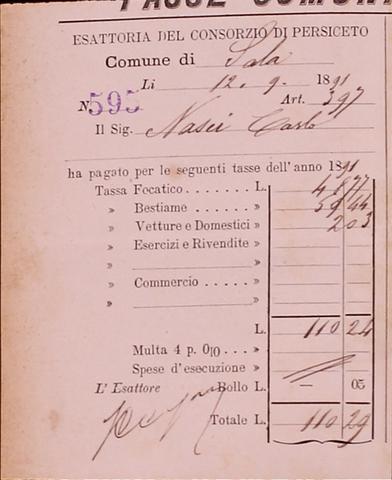 TASSE COMUN
ESATTORIA DEL CONSORZIO DI PERSICETO
Comune di Sala
Li 12. 9. 1891
N. 595 Art. 397
Il Sig. Nasci Carlo
ha pagato per le seguenti tasse dell'anno 1891
Tassa Focatico . . . . . . . L. 48 77
» Bestiame . . . . . » 59 44
» Vetture e Domestici » 2 03
» Esercizi e Rivendite »
» »
» Commercio . . . . . »
» »
L. 110 24
Multa 4 p. 0|0 . . . »
Spese d'esecuzione »
L' Esattore Bollo L. — 05
Totale L. 110 29